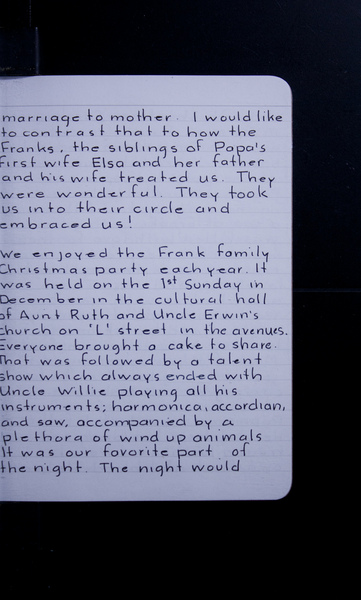 marriage to mother. I would like
to contrast that to how the
Franks, the siblings of Papa's
first wife Elsa and her father
and his wife treated us. They
were wonderful. They took
us into their circle and
embraced us!
We enjoyed the Frank family
Christmas party each year. It
was held on the 1st Sunday in
December in the cultural hall
of Aunt Ruth and Uncle Erwin's
church on 'L' street in the avenues.
Everyone brought a cake to share.
That was followed by a talent
show which always ended with
Uncle Willie playing all his
instruments; harmonica, accordian,
and saw, accompanied by a
plethora of wind up animals
It was our favorite part of
the night. The night would